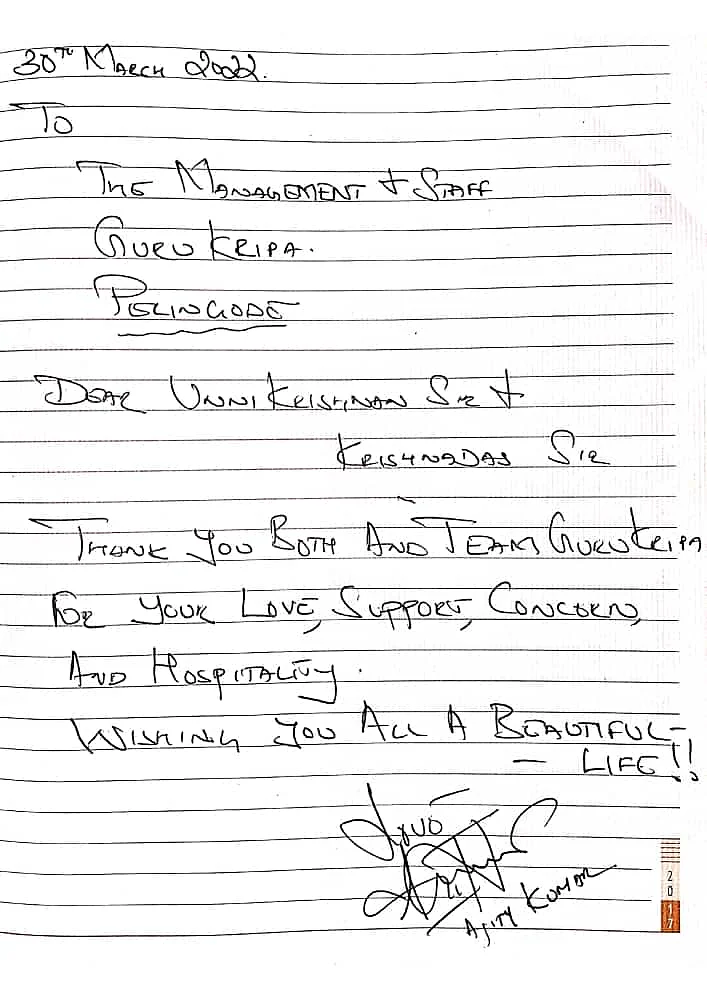 30TH MARCH 2022.
TO
THE MANAGEMENT & STAFF
GURUKRIPA.
PERINGODE
DEAR UNNIKRISHNAN SIR &
KRISHNADAS SIR
THANK YOU BOTH AND TEAM GURUKRIPA
FOR YOUR LOVE, SUPPORT, CONCERN,
AND HOSPITALITY.
WISHING YOU ALL A BEAUTIFUL-
- LIFE!!
Love
AJITH KUMAR
2017